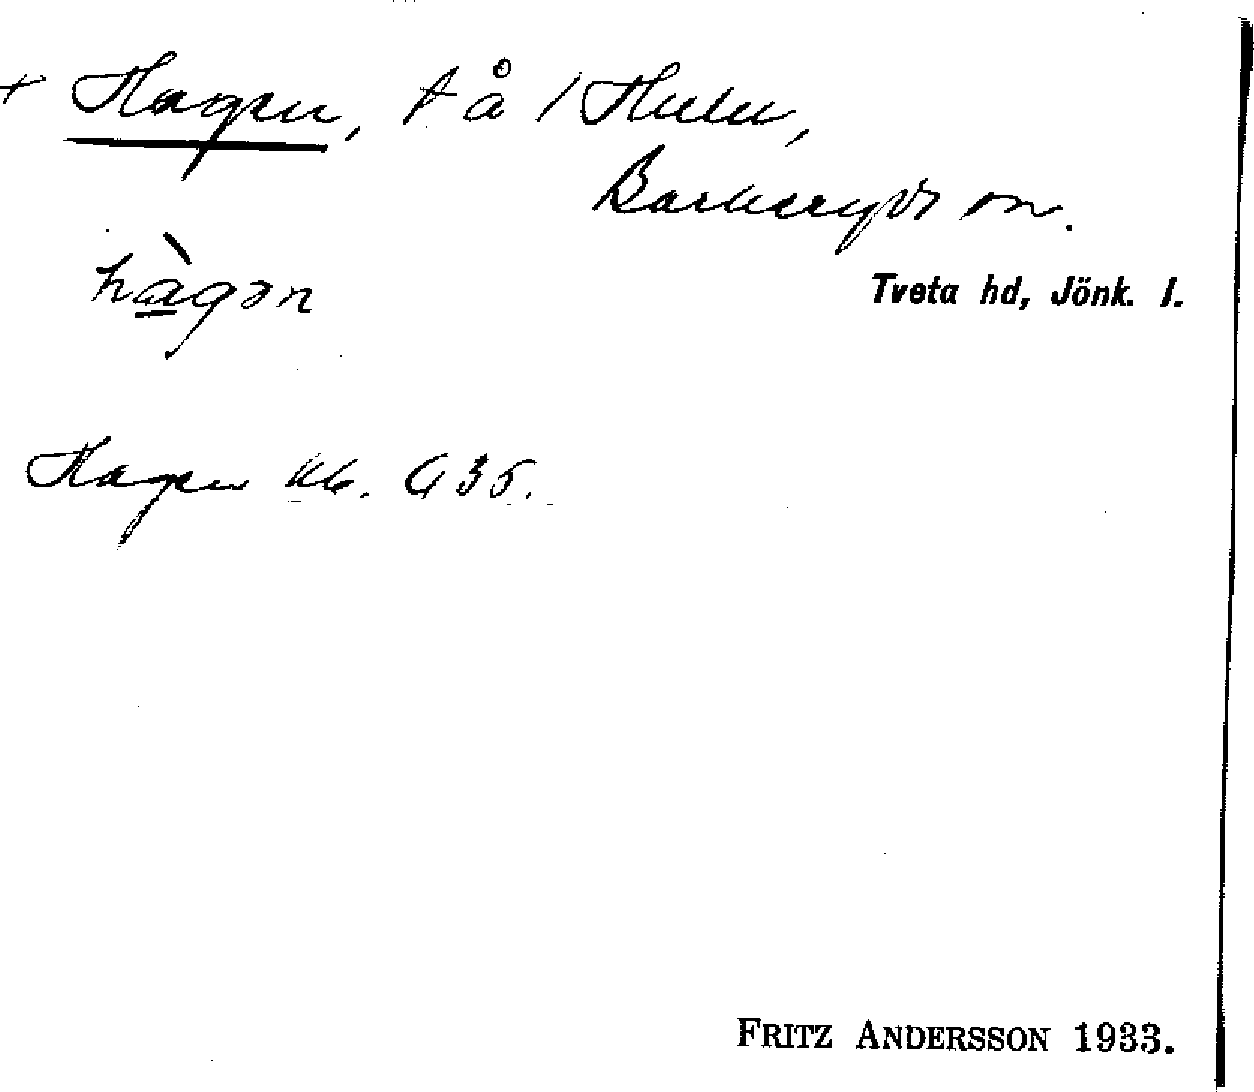 + Hagen, t å 1 Hulu,
Barkeryds sn.
hàgən
Tveta hd, Jönk. l.
Hagen kb. C 35.
FRITZ ANDERSSON 1933.